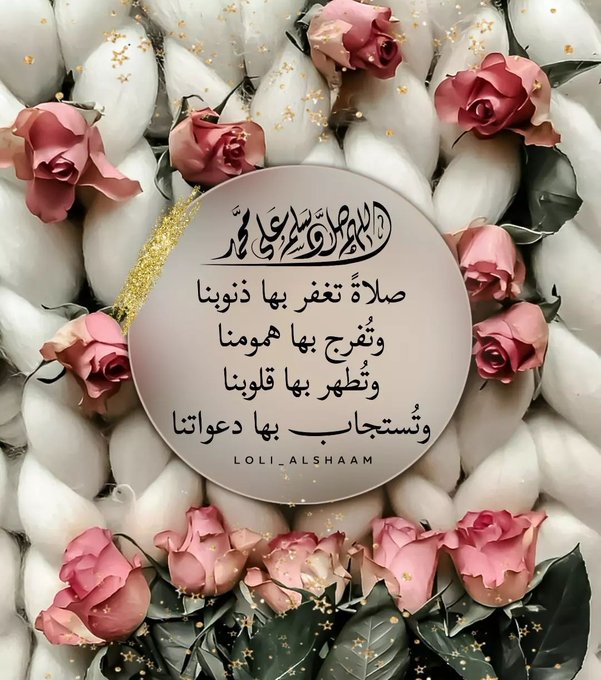 اللهم صل وسلم على محمد
صلاةً تغفر بها ذنوبنا
وتُفرج بها همومنا
وتُطهر بها قلوبنا
وتُستجاب بها دعواتنا
LOLI_ALSHAAM